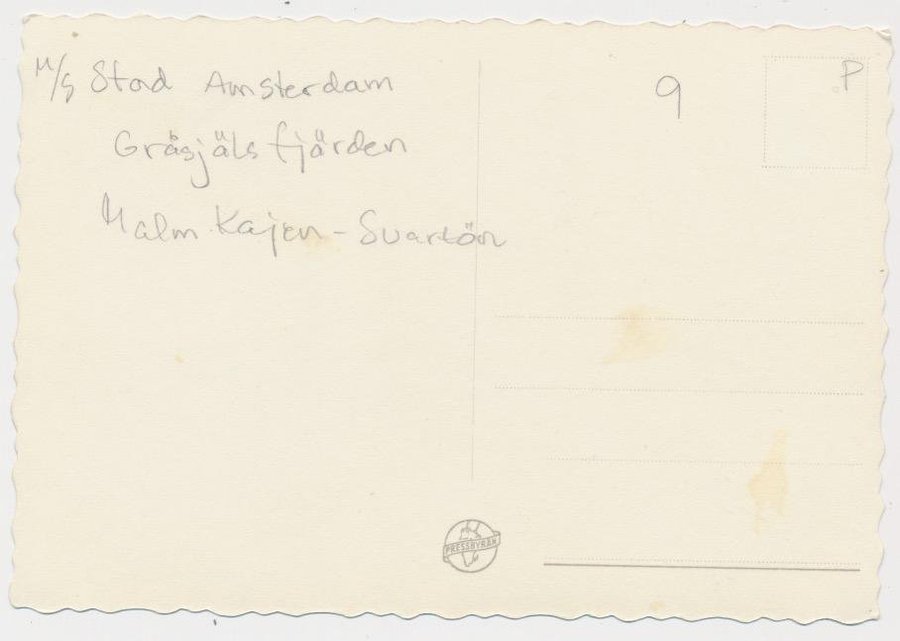 M/S Stad Amsterdam
Gråsjälsfjärden
Malmkajen - Svartön
9
P
PRESSBYRÅN